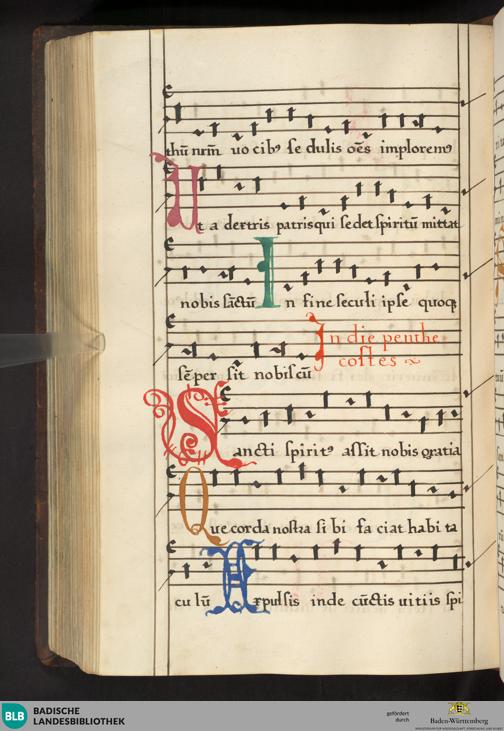 thū nrm̄ uo cibꝰ se dulis oēs imploremꝰ
Ut a dextris patris qui sedet spiritū mittat
nobis sāctū In fine seculi ipse quoqꝫ
sēper sit nobiscū In die penthe
costes
Sancti spiritꝰ assit nobis gratia
Que corda nostra si bi fa ciat habi ta
cu lū Expulsis inde cūctis uitiis spi
BLB BADISCHE
LANDESBIBLIOTHEK
gefördert
durch
Baden-Württemberg